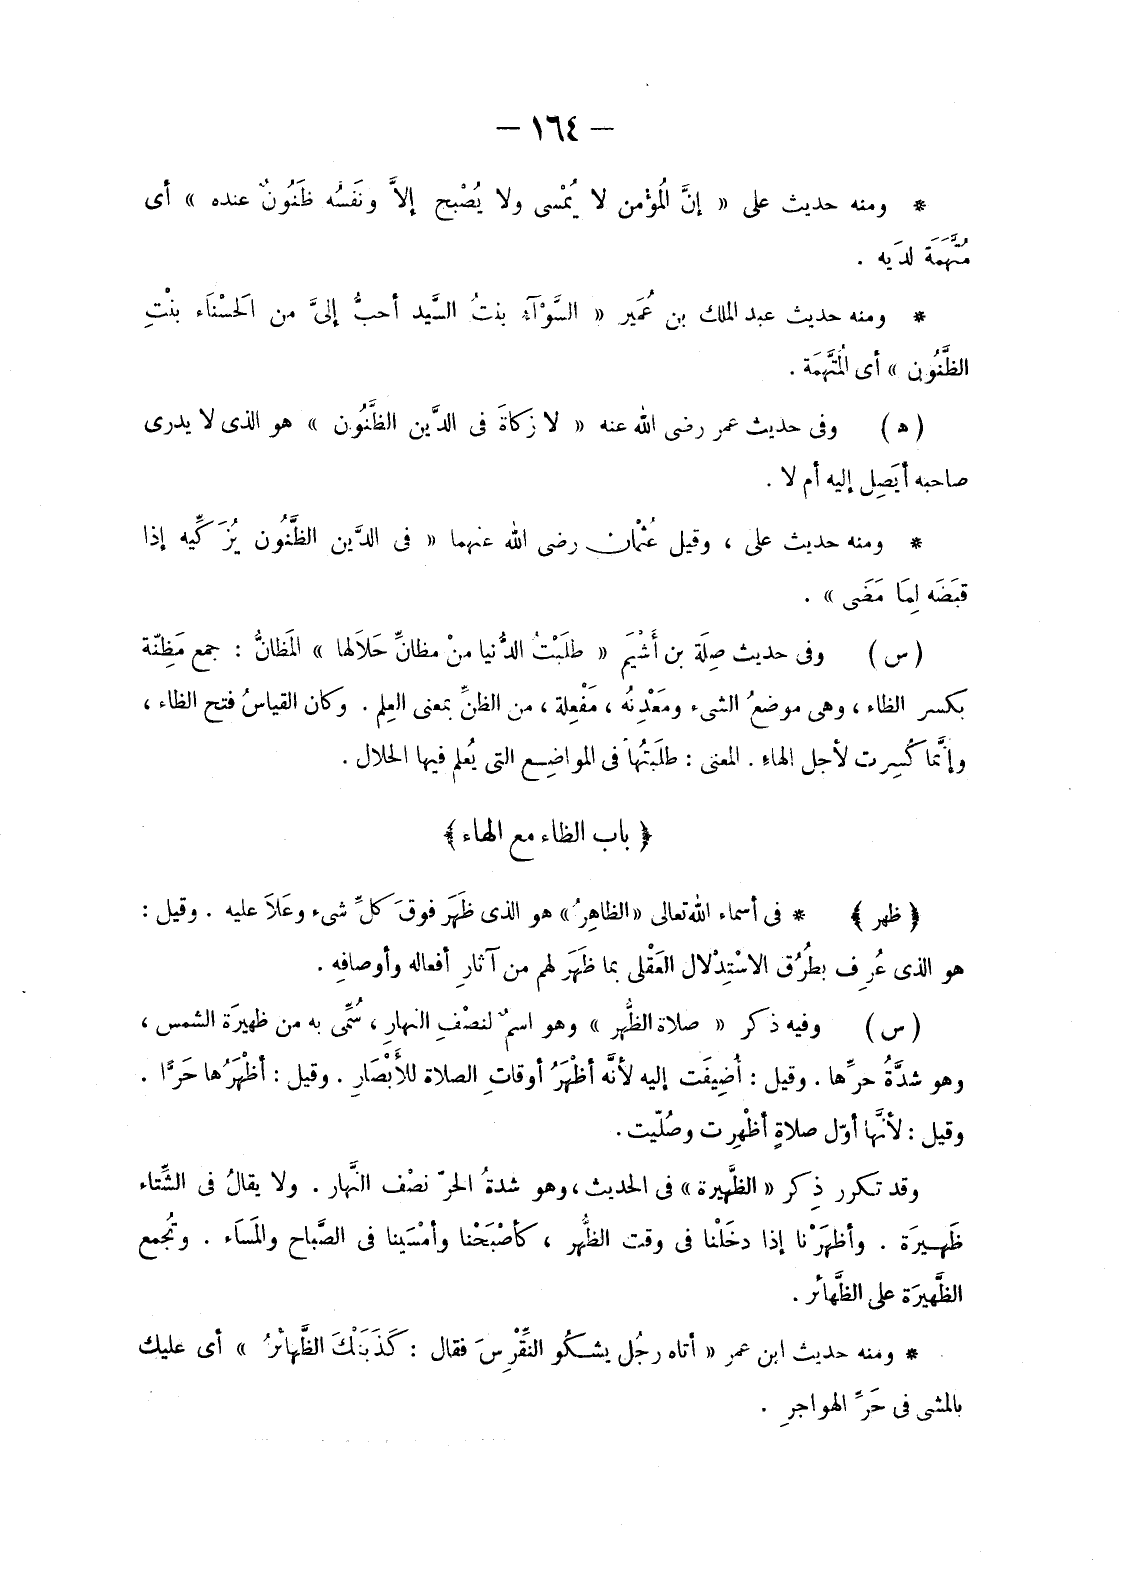 — ١٦٤ —
* ومنه حديث على « إنَّ المُؤمن لا يُمْسى ولا يُصْبح إلاَّ ونَفسُه ظَنُونٌ عنده » أى
مُتَّهَمَة لدَيه .
* ومنه حديث عبد الملك بن عُمَير « السَّوْآءُ بنتُ السَّيد أحبُّ إلىَّ من الَحسْنَاء بنْتِ
الظَّنُون » أى المُتَّهمَة .
( ه ) وفى حديث عمر رضى الله عنه « لا زكاةَ فى الدَّين الظَّنُون » هو الذى لا يدرى
صاحبه أيَصِل إليه أم لا .
* ومنه حديث على ، وقيل عُثْمان رضى الله عنهما « فى الدَّين الظَّنُون يُزَكِّيه إذا
قبَضَه لِمَا مَضَى » .
( س ) وفى حديث صِلَة بن أَشْيَم « طلَبْتُ الدُّنيا منْ مظانِّ حَلاَلها » المَظانُّ : جمع مَظِنّة
بكسر الظاء ، وهى موضعُ الشىء ومَعْدِنُه ، مَفْعِلة ، من الظنِّ بمعنى العِلم . وكان القياسُ فتح الظاء ،
وإنَّما كُسِرت لأجل الهاءِ . المعنى : طلَبتُها فى المواضِع التى يُعلم فيها الحلال .
﴿ باب الظاء مع الهاء ﴾
﴿ ظهر ﴾ * فى أسماء الله تعالى « الظاهِرُ » هو الذى ظَهَر فوقَ كلِّ شىء وعَلاَ عليه . وقيل :
هو الذى عُرِف بطُرُق الاسْتِدْلال العَقْلى بما ظَهَر لهم من آثارِ أفعاله وأوصافِه .
( س ) وفيه ذكر « صلاة الظُّهر » وهو اسمٌ لنصْفِ النهارِ ، سُمِّى به من ظهيرَة الشمس ،
وهو شدَّةُ حرِّها . وقيل : أُضِيفَت إليه لأنَّه أظْهَرُ أوقاتِ الصلاة للأَبْصَارِ . وقيل : أظْهَرُها حَرًّا .
وقيل : لأنَّها أوّل صلاةٍ أظْهِرت وصُلّيت .
وقد تكرر ذِكر « الظَّهيرة » فى الحديث ، وهو شدةُ الحرّ نصْف النَّهار . ولا يقالُ فى الشِّتاء
ظَهيرَة . وأظهَرْنا إذا دخَلْنا فى وقت الظُّهر ، كأصْبَحْنا وأمْسَينا فى الصَّباح والمَسَاء . وتُجمع
الظَّهيرَة على الظَّهائر .
* ومنه حديث ابن عمر « أتاه رجُل يشكُو النِّقْرِسَ فقال : كَذَبَتْكَ الظَّهائرُ » أى عليك
بالمشى فى حَرِّ الهواجرِ .